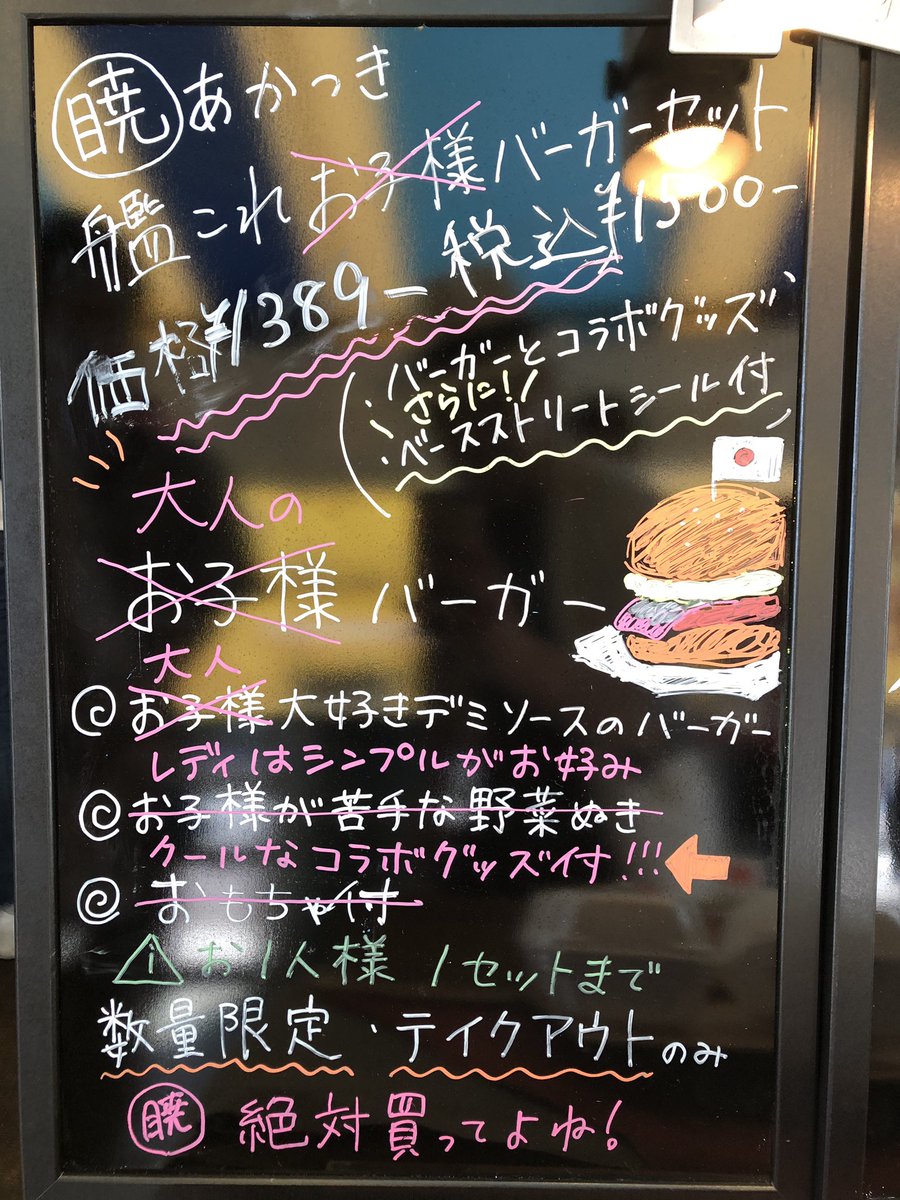 暁 あかつき
艦これお子様バーガーセット
価格¥1389- 税込¥1500-
・バーガーとコラボグッズ
さらに!
・ベースストリートシール付
大人の
お子様 バーガー
大人
お子様大好きデミソースのバーガー
レディはシンプルがお好み
お子様が苦手な野菜ぬき
クールなコラボグッズ付!!!
おもちゃ付
お1人様 1セットまで
数量限定・テイクアウトのみ
暁 絶対買ってよね!